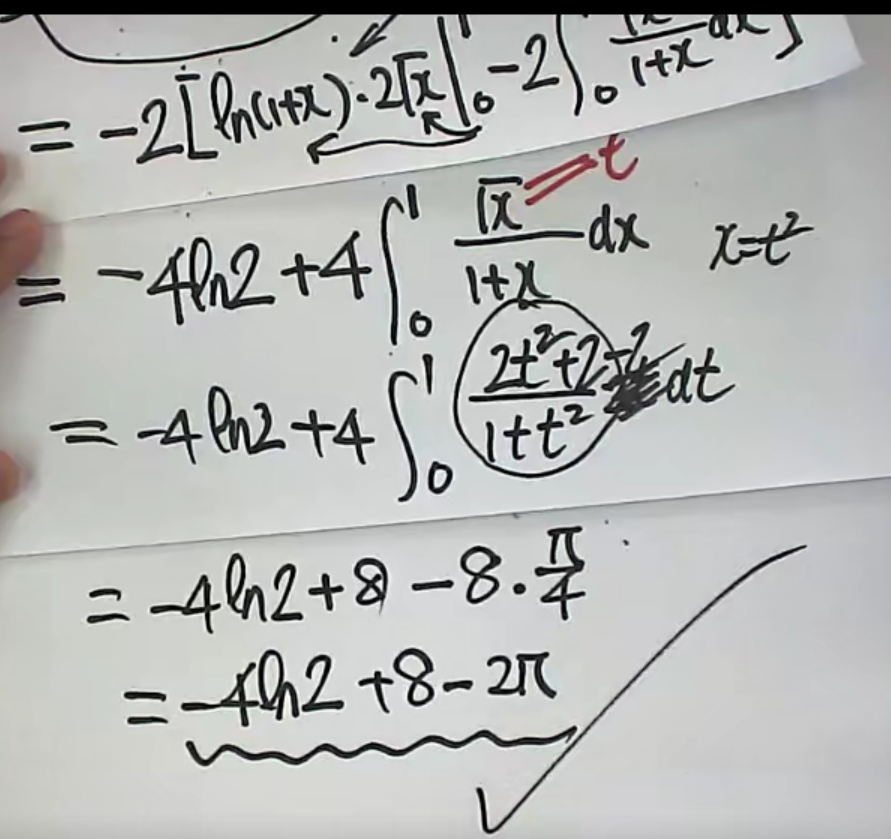 = -2[ln(1+x)·2√x|₀¹ -2∫₀¹ √x/(1+x) dx]
= -4ln2 +4∫₀¹ √x/(1+x) dx x=t²
t
= -4ln2 +4∫₀¹ (2t²+2-2)/(1+t²) dt
= -4ln2+8 -8·π/4
= -4ln2 +8-2π